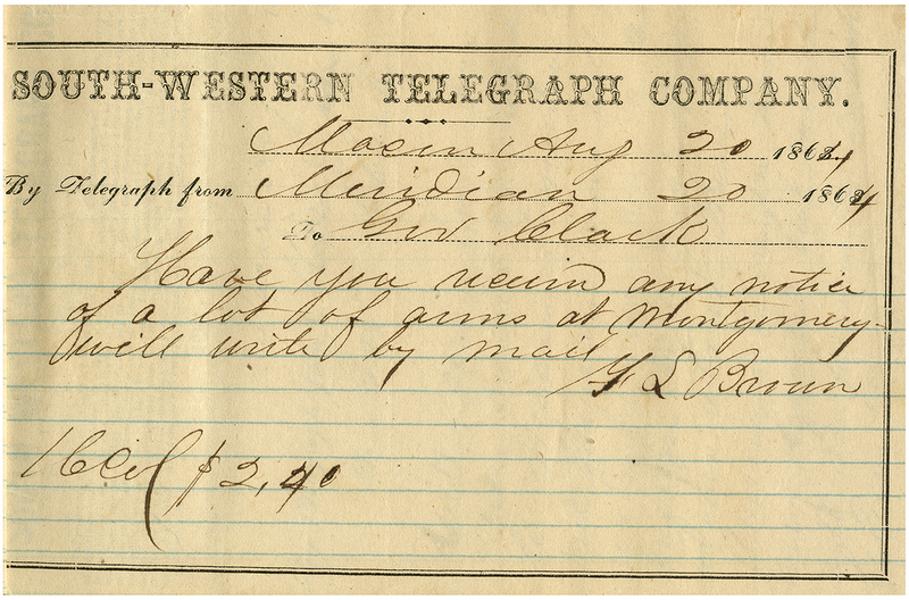 SOUTH-WESTERN TELEGRAPH COMPANY.
Macon Aug 20 1864
By Telegraph from Meridian 20 1864
To Gov Clark
Have you received any notice
of a lot of arms at Montgomery-
will write by mail
Brown
$2,40